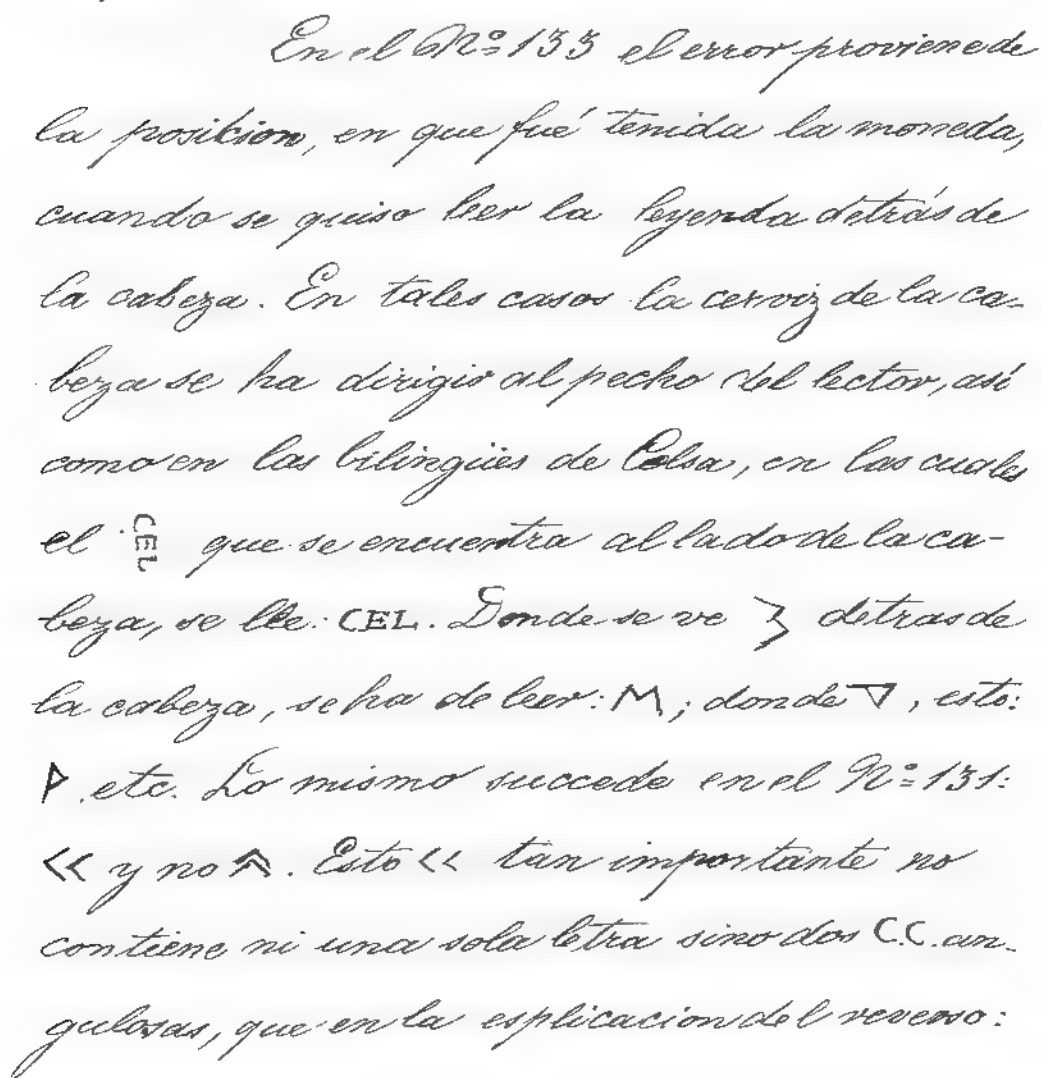 En el Nº 133 el error proviene de
la posicion, en que fué tenida la moneda,
cuando se quiso leer la leyenda detrás de
la cabeza. En tales casos la cerviz de la ca-
beza se ha dirigir al pecho del lector, así
como en las bilingües de Celsa, en las cuales
el CEL que se encuentra al lado de la ca-
beza, se lee: CEL. Donde se ve detras de
la cabeza, se ha de leer: M; donde ▽, esto:
etc. Lo mismo succede en el Nº 131:
<< y no ︽. Esto << tan importante no
contiene ni una sola letra sino dos C.C. an-
gulosas, que en la esplicacion del reverso: